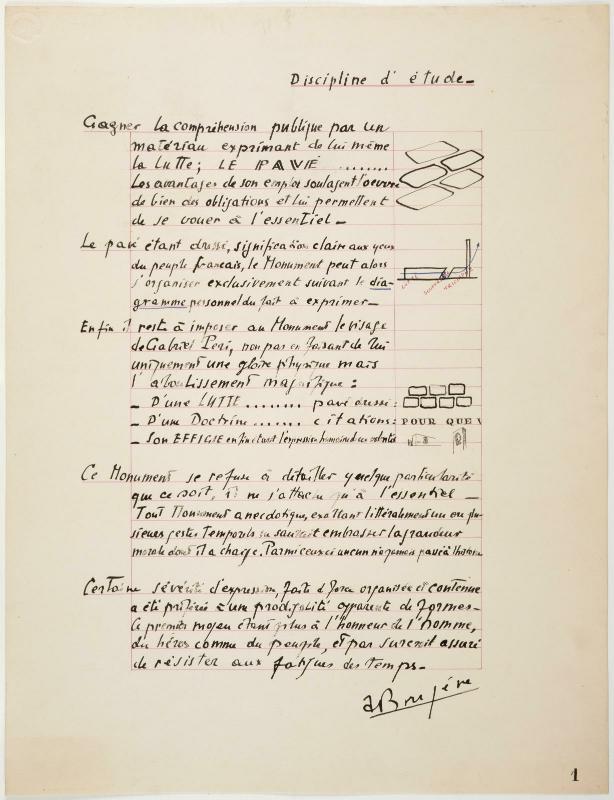 Discipline d'étude_
Gagner la compréhension publique par un
matériau exprimant de lui même
la lutte; LE PAVÉ ........
Les avantages de son emploi soulagent l'oeuvre
de bien des obligations et lui permettent
de se vouer à l'essentiel_
Le pavé étant dressé, signification claire aux yeux
du peuple français, le Monument peut alors
s'organiser exclusivement suivant le dia-
gramme personnel du fait à exprimer_
Enfin il reste à imposer au Monument le visage
de Gabriel Péri, non pas en faisant de lui
uniquement une gloire physique mais
l'aboutissement magnifique:
_ D'une LUTTE ........ pavé dressé:
_ D'une Doctrine ....... citations: POUR QUE
_ Son EFFIGIE enfin étant l'expression humaine d'une volonté
Ce Monument se refuse à détailler quelque particularité
que ce soit, il ne s'attache qu'à l'essentiel_
Tout Monument anecdotique, exaltant littéralement un ou plu-
sieurs gestes temporels ne saurait embrasser la grandeur
morale dont il a charge. Parmi ceux-ci aucun n'a jamais passé à l'histoire
Certaine sévérité d'expression, faite de force organisée et contenue
a été préférée à une prodigalité apparente de formes_
Ce premier moyen étant plus à l'honneur de l'homme,
du héros comme du peuple, et par surcroit assuré
de résister aux fatigues des temps_
1